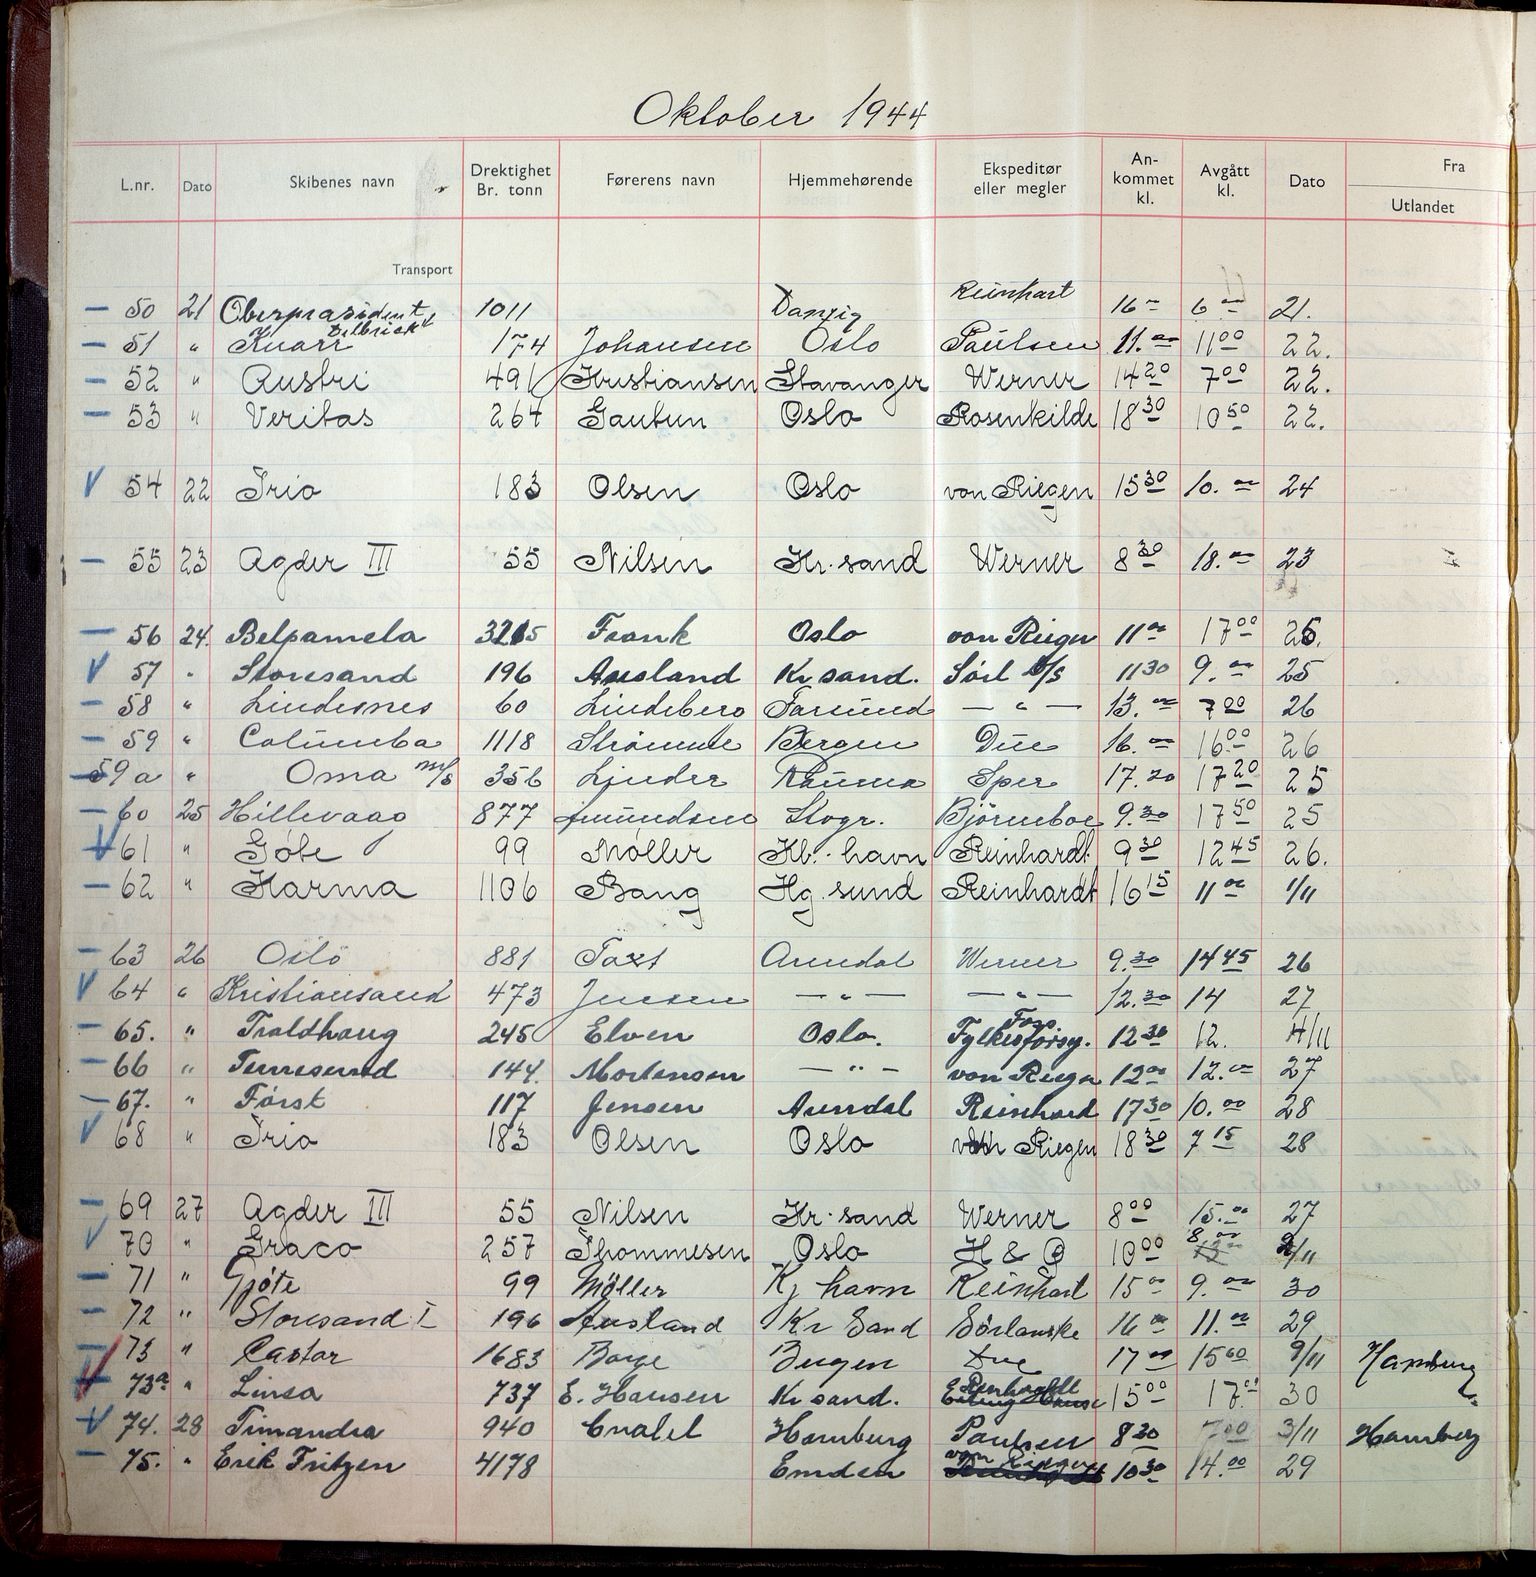 Oktober 1944
L.nr. Dato Skibenes navn Drektighet Br. tonn Førerens navn Hjemmehørende Ekspeditør eller megler An-kommet kl. Avgått kl. Dato Fra Utlandet
Transport
— 50 21 Oberpräsident Delbrück 1011 Danzig Reinhart 16 00 6 00 21.
— 51 " Knarr 174 Johansen Oslo Paulsen 11.00 11 00 22.
— 52 " Austri 491 Kristiansen Stavanger Werner 14 20 7 00 22.
— 53 " Veritas 264 Gautun Oslo Rosenkilde 18 30 10 50 22.
V 54 22 Trio 183 Olsen Oslo von Riegen 15 30 10. 00 24
— 55 23 Agder III 55 Nilsen Kr. sand Werner 8 30 18. 00 23
— 56 24. Belpamela 3215 Frank Oslo von Riegen 11 00 17 00 25.
V 57 " Storesand 196 Ausland Kr sand. Sørl 11 30 9. 00 25
— 58 " Lindesnes 60 Lindeberg Farsund — " — 13. 00 7 00 26
— 59 " Columba 1118 Strømme Bergen Due 16. 00 16.00 26
— 59a " Oma m/s 356 Linder Rauma Sper 17.20 17 20 25
— 60 25 Hillevaag 877 Amundsen Stvgr. Bjørneboe 9.30 17 50 25
V 61 " Gøte 99 Møller Kb. havn Reinhardt 9 30 12 45 26.
— 62 " Karma 1106 Bang Hg. sund Reinhardt 16 15 11 00 1/11
— 63 26 Oslo 881 Taxt Arendal Werner 9.30 14 45 26
V 64 " Kristiansand 473 Jensen — " — — " — 12.30 14 27
— 65. " Troldhaug 245 Elven Oslo. Fylkesforsy. 12 30 12. 4/11
— 66 " Ternesund 144. Mortensen — " — von Riegen 12 00 12. 00 27
— 67. " Først 117 Jensen Arendal Reinhard 17 30 10. 00 28
V 68 " Trio 183 Olsen Oslo von Riegen 18 30 7 15 28
— 69 27 Agder III 55 Nilsen Kr. sand Werner 8 00 15. 00 27
V 70 " Graco 257 Thommesen Oslo H & 10 00 8. 00 2/11
— 71 " Gjøte 99 Møller Kj havn Reinhart 15 00 9. 00 30
— 72 " Storesand I 196 Ausland Kr Sand Sørlanske 16 00 11. 00 29
— 73 " Castor 1683 Borge Bergen Due 17 00 15 00 9/11 Hamburg
73a " Linsa 737 E. Hansen Kr sand. Reinhardt 15 00 17. 30
V 74. 28 Timandra 940 Hamburg Paulsen 8 30 7 00 3/11 Hamburg
— 75. " Erik Fritzen 4178 Emden von Riegen 10 30 14. 00 29